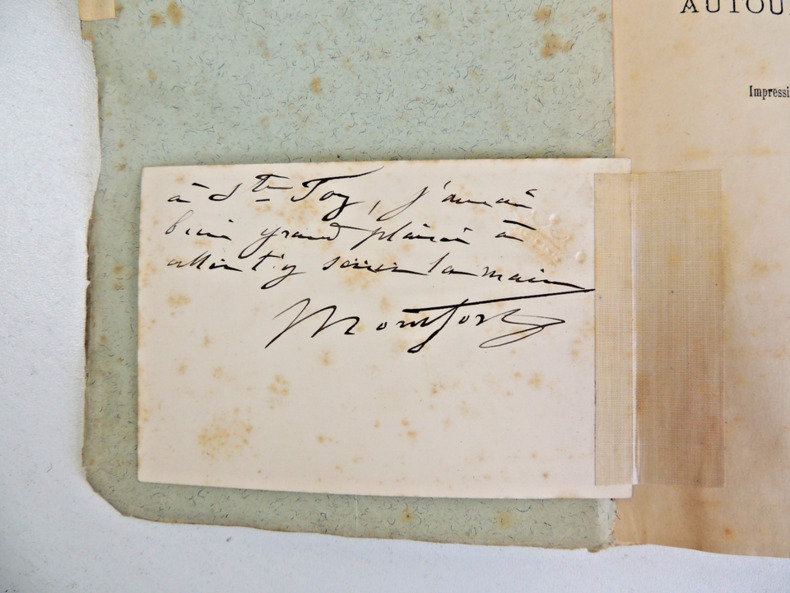 AUTOU
Impressi
à Ste Foy, j'aurai
bien grand plaisir à
aller t'y serrer la main
Montfort